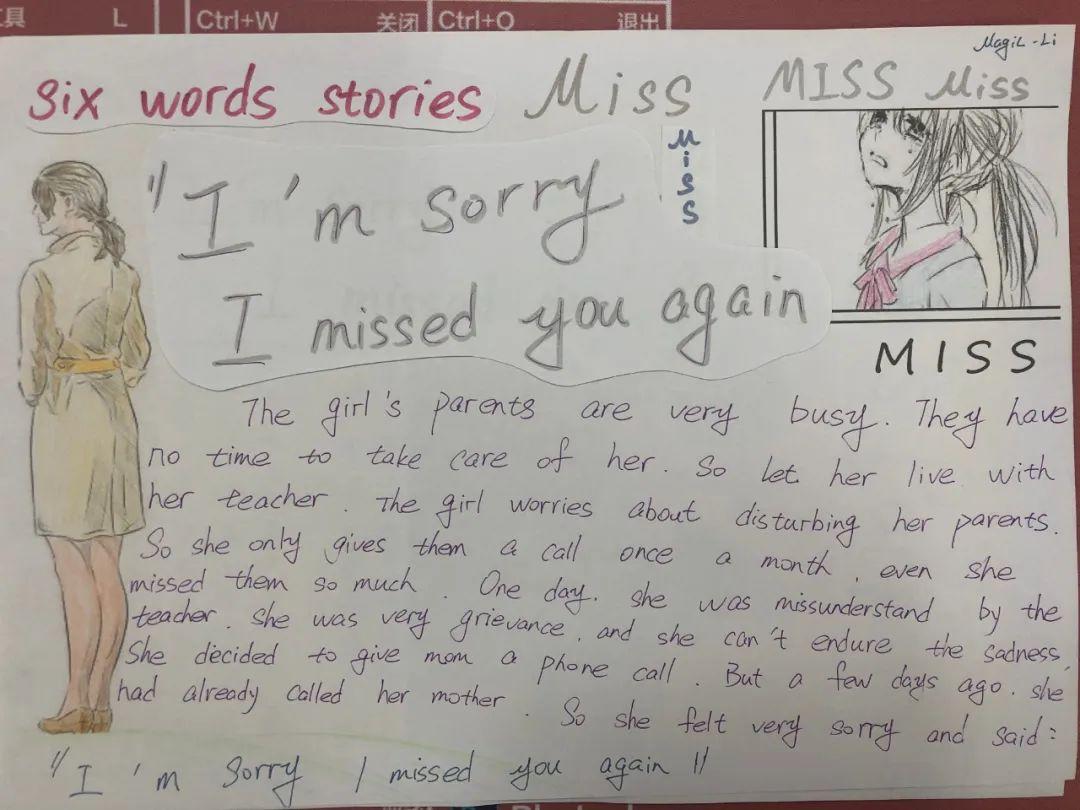 具 L Ctrl+W 关闭 Ctrl+Q 退出
MagiL-Li
six words stories Miss MISS Miss
Miss
"I'm sorry
I missed you again
MISS
The girl's parents are very busy. They have
no time to take care of her. So let her live with
her teacher. The girl worries about disturbing her parents.
So she only gives them a call once a month, even she
missed them so much. One day. she was missunderstand by the
teacher. She was very grievance, and she can't endure the sadness,
She decided to give mom a phone call. But a few days ago. she
had already called her mother. So she felt very sorry and said:
"I'm sorry I missed you again"